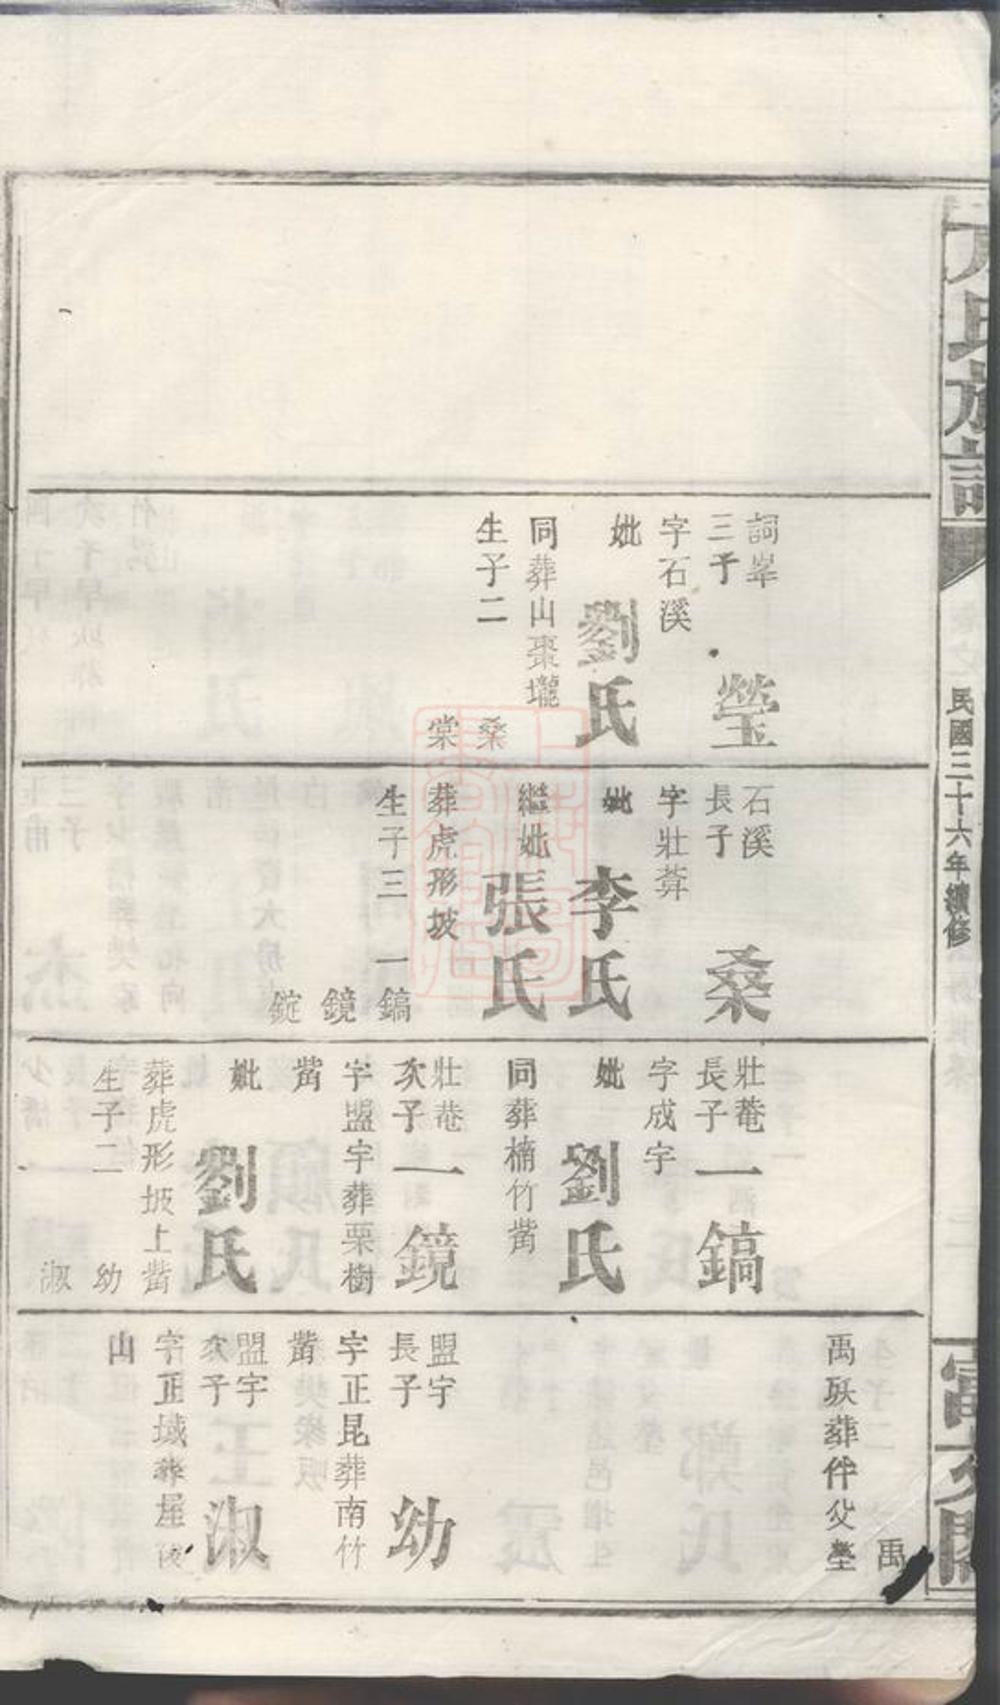 氏族譜
民國三十六年續修
詞岸
三子
瑩
字石溪
妣
劉氏
同葬山棗壠
生子二
桑
棠
石溪
長子
桑
字壯葊
妣
李氏
繼妣
張氏
葬虎形坡
生子三
一鎬
鏡
錠
壯菴
長子
一鎬
字成宇
妣
劉氏
同葬楠竹嵛
壯菴
次子
一鏡
字盟宇葬栗樹
嵛
妣
劉氏
葬虎形坡上嵛
生子二
幼
淑
禹
禹殀葬伴父塋
盟宇
長子
幼
字正昆葬南竹
嵛
盟宇
次子
淑
字正域葬屋後
山